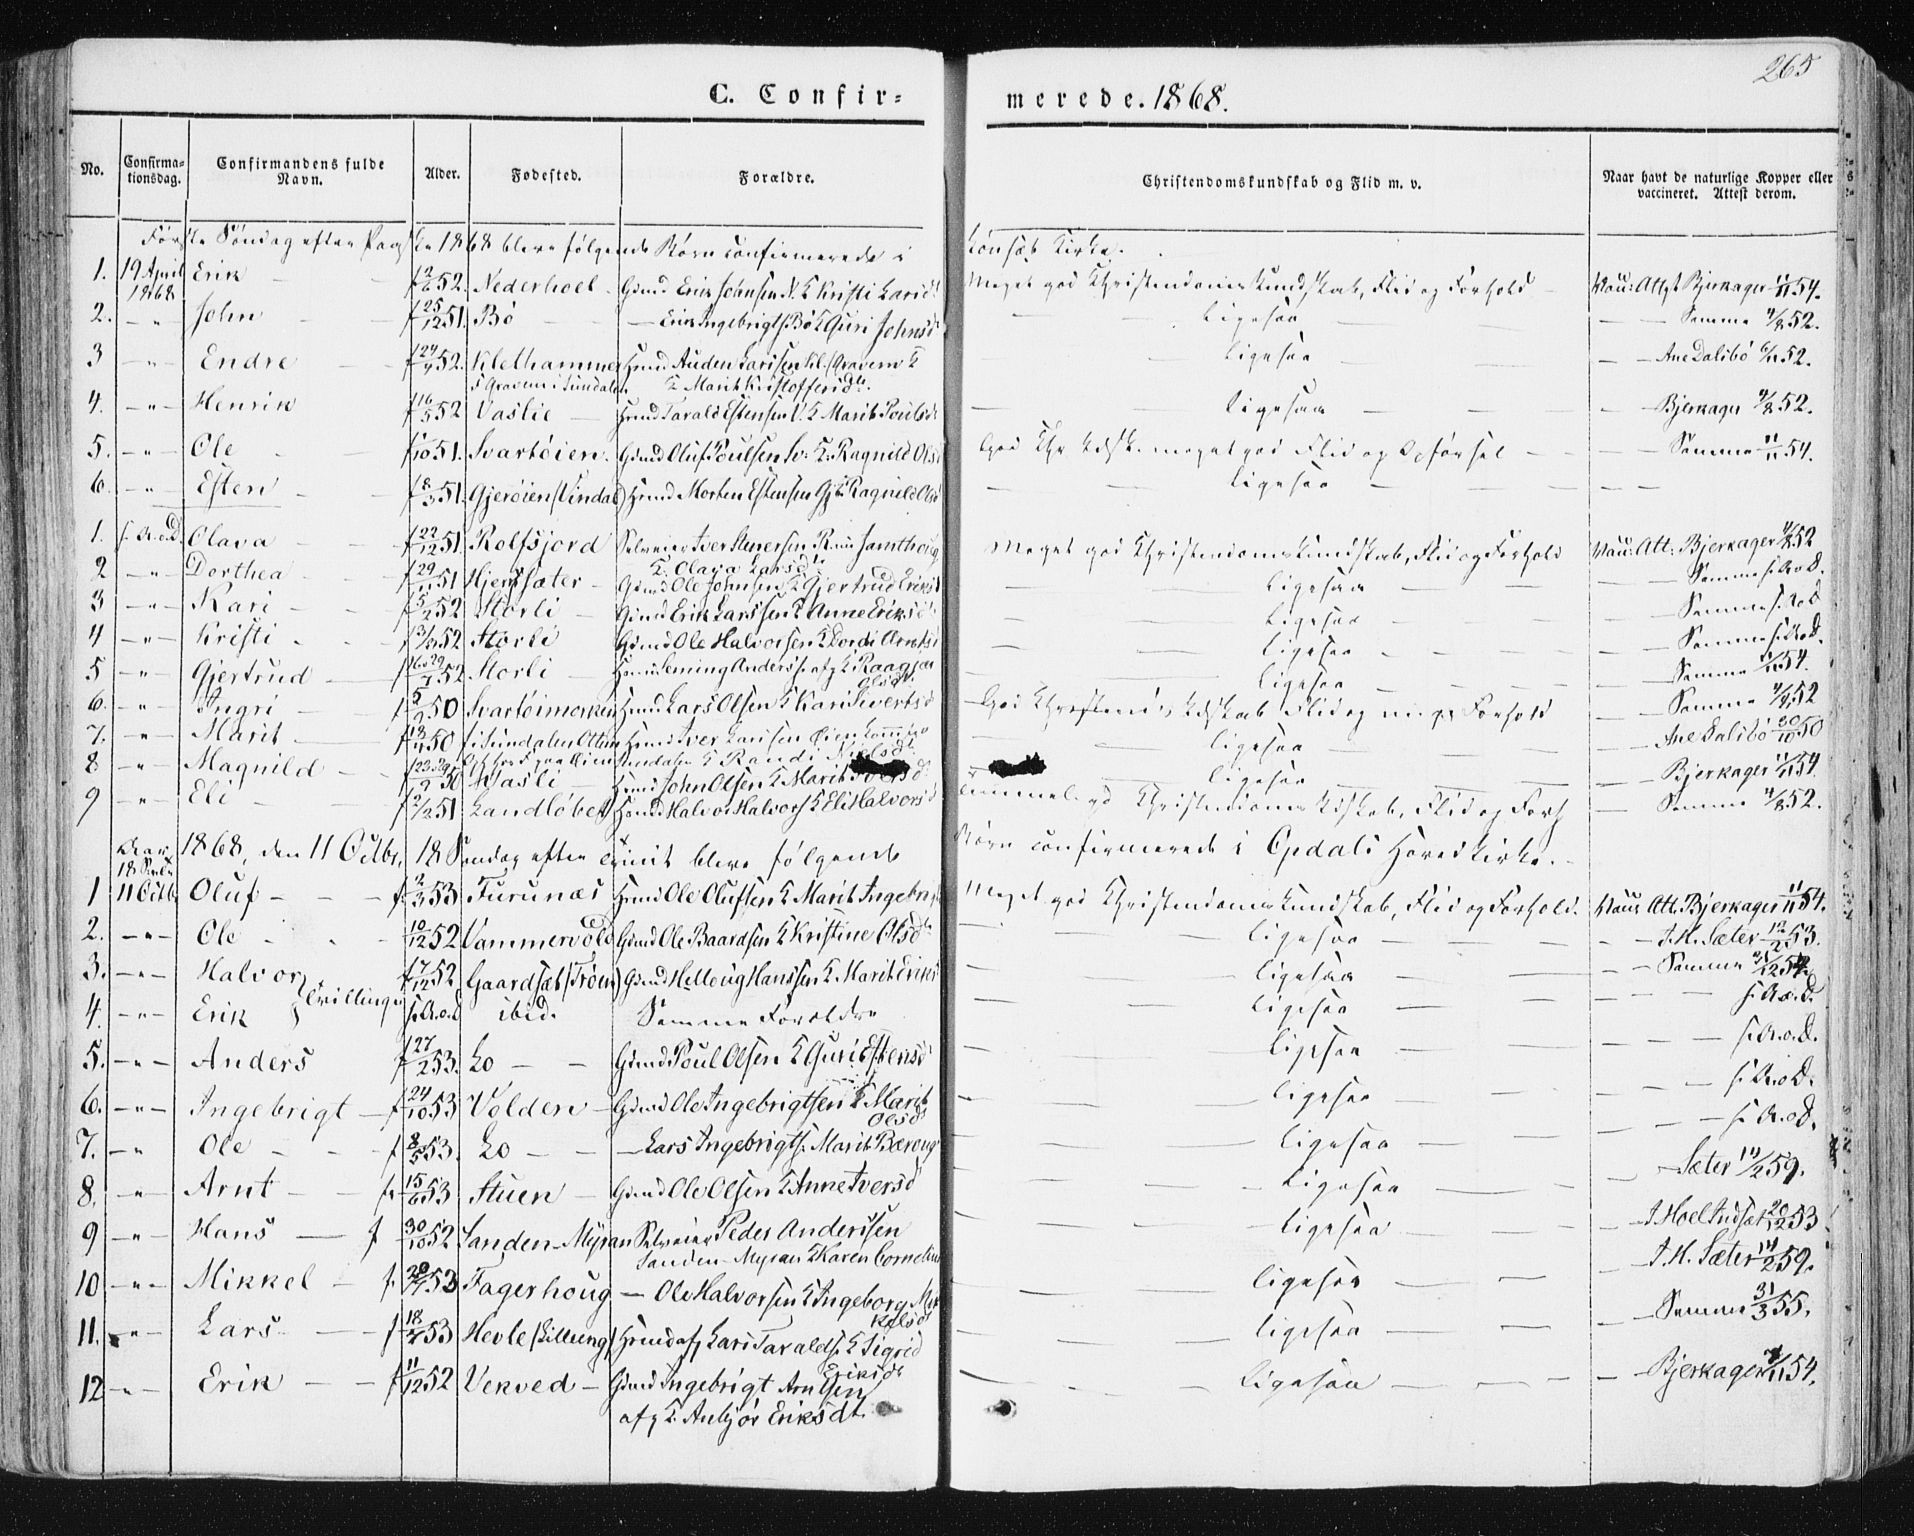 265
C. Confir=merede. 1868.
No. Confirma=tionsdag. Confirmandens fulde Navn. Alder. Fødested. Forældre. Christendomskundskab og Flid m. v. Naar havt de naturlige Kopper eller vaccineret. Attest derom.
Første Søndag efter Paaske 1868 bleve følgende Børn confirmerede i Lønsæt Kirke.
1. 19 April 1868 Erik f 2/6 52. Nederhoel Gmd Erik Johnsen N. & Kristi Larsdt Meget god Christendomskundskab, Flid og Forhold Vac: Att. Bjerkager 11/11 54.
2. -"- John f 25/12 51. Bø — Erik Ingebrigts. Bø & Guri Johnsd ligesaa Samme 4/8 52.
3 -"- Endre f 24/4 52. Klethammer Hmd Auden Larssen Kl. (Gravem &
f. Gravem i Sundalen & Marit Kristoffersdt. ligesaa Ane Dalibø 6/11 52.
4. -"- Henrik f 16/5 52 Vaslie Hmd Tarald Estensen V. & Marit Poulsd ligesaa Bjerkager 4/8 52.
5. -"- Ole f 1/10 51. Svartøien. Gmd Oluf Poulsen Sv. & Ragnild Olsd God Chr. kdsk. meget god Flid og Opførsel Samme 11/11 54.
6. -"- Esten f 18/3 51. Gjerøien (Vindal) Hmd Morten Estensen Gj. & Ragnild Olsd ligesaa — — —
1. s. A. o. D. Olava f 22/12 51. Rolfsjord Selveier Iver Stenersen R.
& Olava Larsdt Meget god Christendomskundskab, Flid og Forhold Vac: Att: Bjerkager 4/8 52
2 -"- Dorthea f 29/11 51 Hjerssæter Gmd Ole Johnsen & Gjertrud Eriksd ligesaa Samme s. A. o. D.
3 -"- Kari f 5/2 52 Storli Gmd Erik Larssen & Anne Eriksd ligesaa Samme s. A. o. D
4 -"- Kristi f 3/3 52 Storli Gmd Ole Halvorsen & Dordi Arntsd ligesaa Samme s. A. o. D.
5 -"- Gjertrud 52 Storli Anders & Raagjær
Olsdt. ligesaa Samme 11/11 54.
6. -"- Ingri f 5/2 50 Svartøimoeken Hmd Lars Olsen & Kari Sivertsd God Christend. kdskab Flid og Forhold Samme 4/8 52
7. -" Marit f 13/4 50 f. i Sundalen Hmd Iver Larssen Øien
& Randi Nielsdt ligesaa Ane Dalibø 20/10 50
8 -"- Magnild 50 Vasli Hmd John Olsen & Marit Iversd ligesaa Bjerkager 11/11 54
9 -"- Eli f 2/2 51 Landløbet Hmd Halvor Halvors. & Eli Halvorsd Christendoms kdskab, Flid og Forh Samme 4/8 52.
Aar 1868, den 11 Octbr, 18 Søndag efter Trinit bleve følgende Børn confirmerede i Opdals Hovedkirke.
1 11 Octb Oluf f. 2/3 53 Furunæs Hmd Ole Olufsen & Marit Ingebrigtsd Meget god Christendomskundskab, Flid og Forhold. Vacc. Att. Bjerkager 11/11 54.
2. -"- Ole 10/12 52 Vammervold Gmd Ole Baardsen & Kristine Olsdt ligesaa I. H. Sæter 12/2 53.
3. -"- Halvor f 17/12 52 Gaardsæt (Trøen) Gmd Helloug Hanssen & Marit Eriksd ligesaa Samme 31/12 54
4. -"- Erik } Tvillinger s. A. o. D ibid. Samme Forældre ligesaa s. A. o. D.
5. -"- Anders f 27/2 53. Lo Gmd Poul Olsen & Guri Estensd ligesaa s. A. o. D.
6. -"- Ingebrigt f 24/10 53 Volden Gmd Ole Ingebrigtsen & Marit
Olsd ligesaa s. A. o. D.
7. -" Ole f 8/5 53. Lo — Lars Ingebrigts. Marit Bæroug ligesaa s. A. o. D.
8. -"- Arnt f. 15/6 53 Stuen Gmd Ole Olsen & Anne Iversd ligesaa Sæter 14/2 59.
9 -"- Hans f 30/10 52 Sanden-Myran Selveier Peder Anderssen
Sanden-Myran & Karen Cornelius ligesaa I Hoel Indsæt 20/12 53
10 -"- Mikkel f. 53 Fagerhoug — Ole Halvorsen & Ingeborg Mik
kelsdt ligesaa I. H. Sæter 14/2 59.
11. -"- Lars f 18/4 53 Hevle (Lilleeng) Hmd afg Lars Taralds. & Sigrid
Eriksdt ligesaa Samme 31/3 55.
12 -"- Erik f 11/12 52 Vekved Gmd Ingebrigt Arntsen
afg & Anbjør Eriksdt. ligesaa Bjerkager 11/11 54.